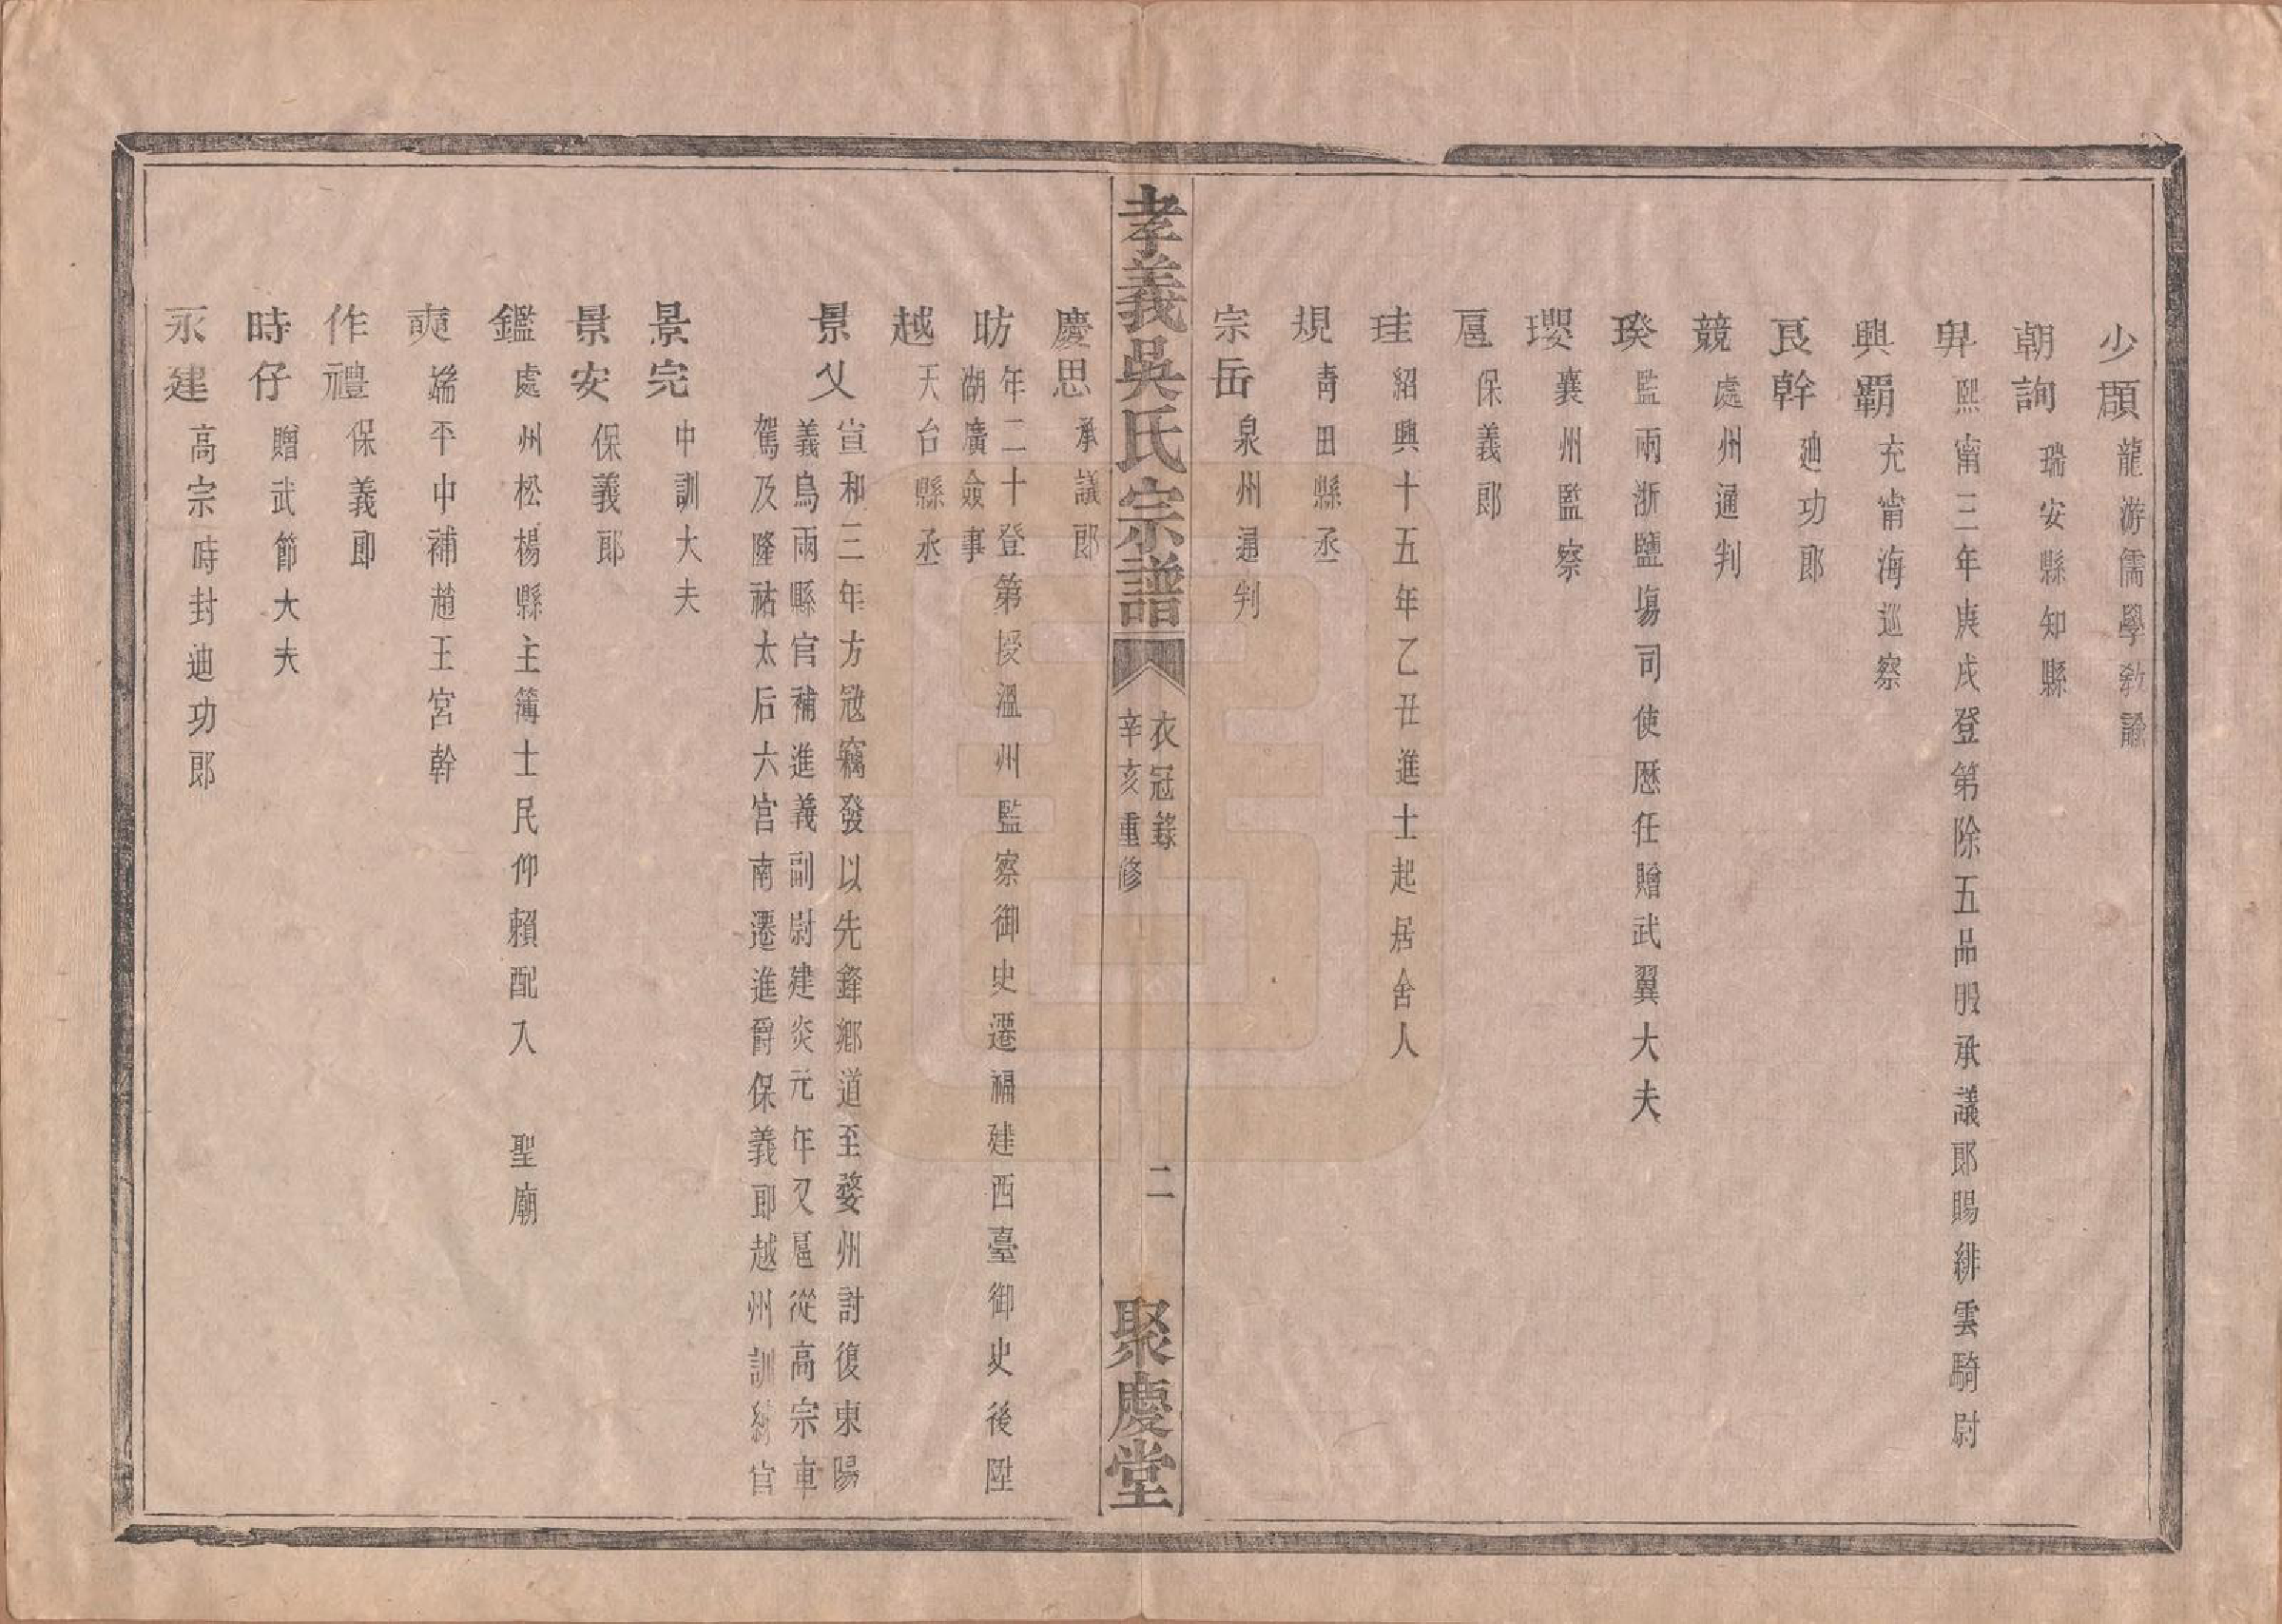 少顒 龍游儒學敎諭
朝詢 瑞安縣知縣
昇 熙甯三年庚戌登第除五品服承議郎賜緋雲騎尉
興覇 充甯海巡察
良幹 廸功郎
競 處州通判
㻱 監兩浙鹽塲司使厯任贈武翼大夫
瓔 襄州監察
扈 保義郎
珪 紹興十五年乙丑進士起居舍人
規 靑田縣丞
宗岳 泉州通判
孝義吳氏宗譜 衣冠錄 辛亥重修 二 聚慶堂
慶思 承議郎
昉 年二十登第授溫州監察御史遷福建西臺御史後陞
湖廣僉事
越 天台縣丞
景父 宣和三年方寇竊發以先鋒鄉道至婺州討復東陽
義烏兩縣官補進義副尉建炎元年又扈從高宗車
駕及隆祐太后六宮南遷進爵保義郎越州訓練官
景完 中訓大夫
景安 保義郎
鑑 處州松楊縣主簿士民仰賴配入 聖廟
奭 端平中補趙王宮幹
作禮 保義郎
時仔 贈武節大夫
永建 高宗時封迪功郎